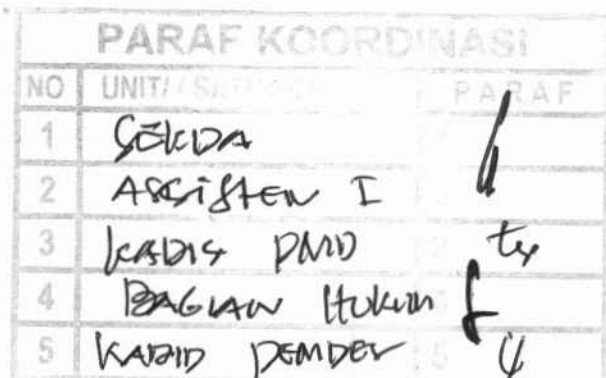 PARAF KOORDINASI
NO UNIT/ PARAF
1 SEKDA
2 ASSISTEN I
3 KADIS PMD
4 BAGIAN HUKUM
5 KABID PEMDES